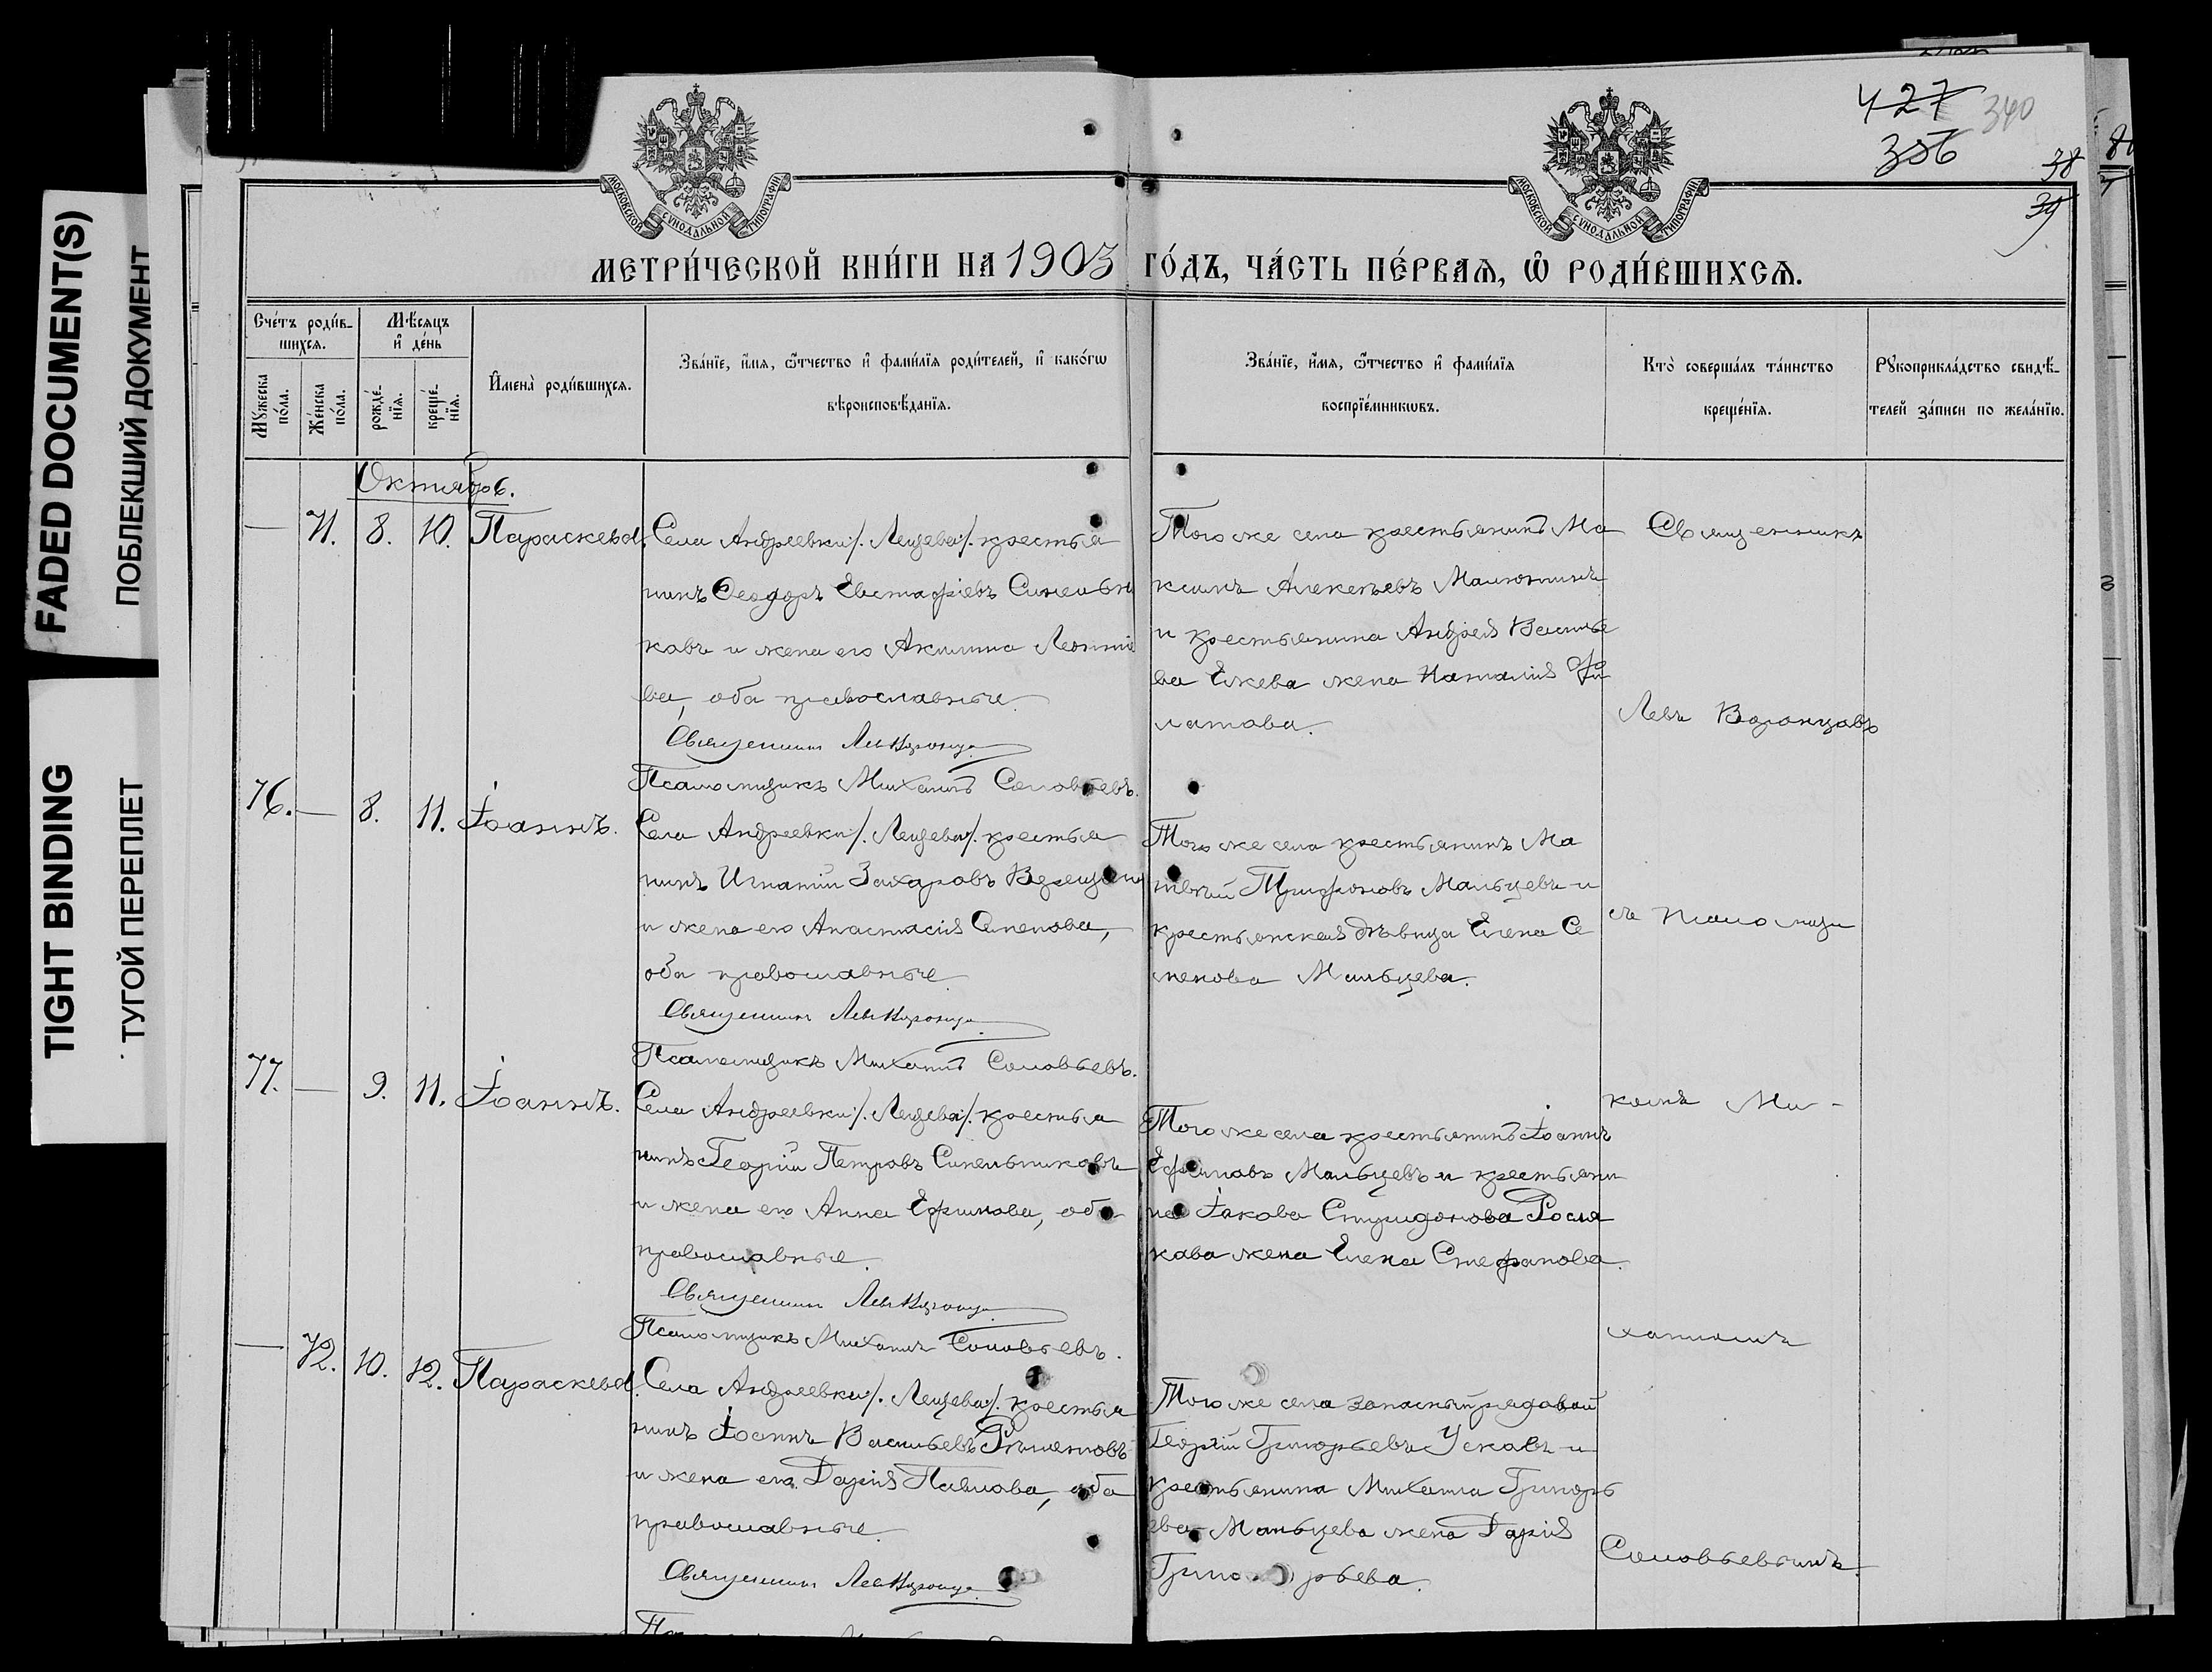 FADED DOCUMENT(S)
ПОБЛЕКШИЙ ДОКУМЕНТ
TIGHT BINDING
ТУГОЙ ПЕРЕПЛЕТ
427
340
38
39
МОСКОВСКОЙ СУНОДАЛЬНОЙ ТИПОГРАФІИ
МОСКОВСКОЙ СУНОДАЛЬНОЙ ТИПОГРАФІИ
МЕТРИ́ЧЕСКОЙ КНИ́ГИ НА 1903 ГО́ДЪ, ЧА́СТЬ ПЕ́РВАѦ, Ѡ҆ РОДИ́ВШИХСѦ.
Сче́тъ роди́в-
шихсѧ.
Мꙋжеска
по́ла.
Же́нска
по́ла.
Мѣ́сѧцъ
и҆ де́нь
рожде́-
нїѧ.
креще́-
нїѧ.
И҆мена̀ роди́вшихсѧ.
Зва́нїе, и҆́мѧ, ѻ҆́тчество и҆ фами́лїѧ роди́телей, и҆ како́гѡ
вѣроисповѣ́данїѧ.
Зва́нїе, и҆́мѧ, ѻ҆́тчество и҆ фами́лїѧ
воспрїе́мникѡвъ.
Кто̀ соверша́лъ та́инство
креще́нїѧ.
Рꙋкоприкла́дство свидѣ́-
телей за́писи по жела́нїю.
Октябрь.
— 71. 8. 10. Параскева.
Села Андреевки /. Лещева /. крестья
нинъ Ѳеодоръ Евстафіевъ Синельни
ковъ и жена его Акилина Леонтіе
ва, оба православные.
Священникъ Левъ Воронцовъ
Псаломщикъ Михаилъ Соловьевъ.
Того же села крестьянинъ Ма
ксимъ Алексѣевъ Малютинъ
и крестьянина Андрея Василье
ва Ежева жена Наталія Фи
латова.
76. — 8. 11. Іоаннъ.
Села Андреевки /. Лещева /. крестья
нинъ Игнатій Захаровъ
и жена его Анастасія Семенова,
оба православные.
Священникъ Левъ Воронцовъ
Псаломщикъ Михаилъ Соловьевъ.
Того же села крестьянинъ Ма
твѣй Трифоновъ Мальцевъ и
крестьянская дѣвица Елена Се
менова Мальцева.
77. — 9. 11. Іоаннъ.
Села Андреевки /. Лещева /. крестья
нинъ Георгій Петровъ Синельниковъ
и жена его Анна Ефимова, оба
православные.
Священникъ Левъ Воронцовъ
Псаломщикъ Михаилъ Соловьевъ.
Того же села крестьянинъ Іоаннъ
Ефимовъ Мальцевъ и крестьяни
на Іакова Спиридонова Рося
кова жена Елена Стефанова.
— 72. 10. 12. Параскева.
Села Андреевки /. Лещева /. крестья
нинъ Іоаннъ Васильевъ
и жена его Дарія Павлова, оба
православные.
Священникъ Левъ Воронцовъ
Того же села запасный рядовой
Георгій Григорьевъ Усковъ и
крестьянина Михаила Григорь
ева Мальцева жена Дарія
Григорьева.
Священникъ
Левъ Воронцовъ
съ псаломщи
комъ Ми-
хаиломъ
Соловьевымъ.